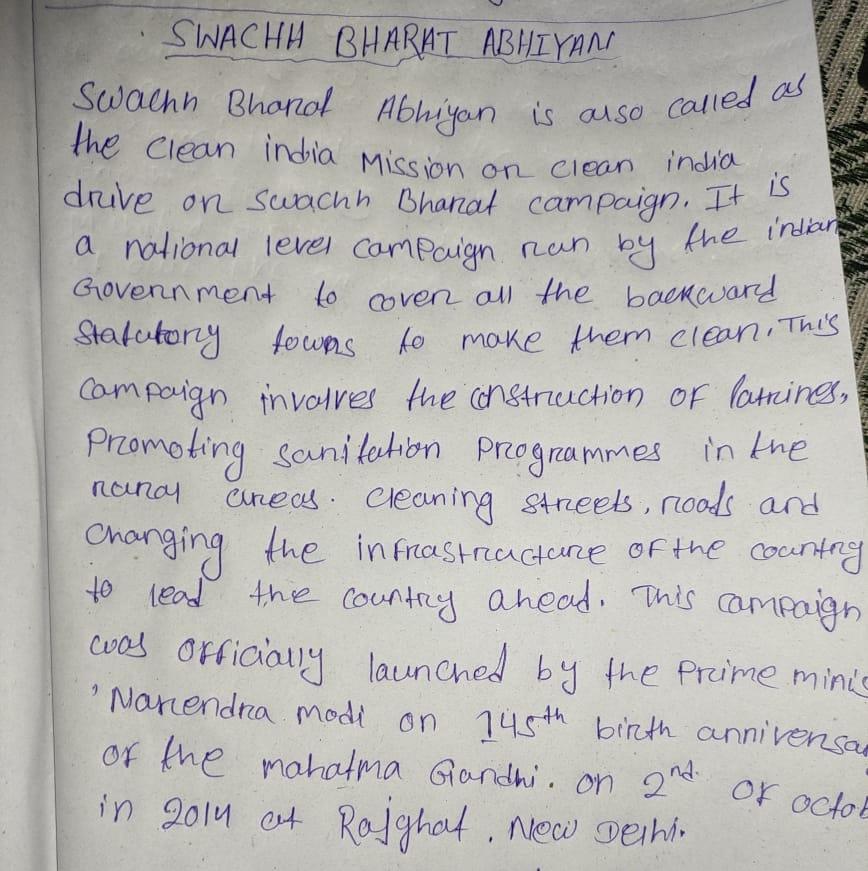 SWACHH BHARAT ABHIYAN
Swachh Bharat Abhiyan is also called as
the clean india Mission or clean india
drive or swachh Bharat campaign. It is
a national level campaign run by the indian
Government to cover all the backward
Statutory towns to make them clean. This
campaign involves the construction of latrines,
Promoting sanitation Programmes in the
rural areas. cleaning streets, roads and
Changing the infrastructure of the country
to lead the country ahead. This campaign
was officially launched by the Prime minis
'Narendra modi on 145th birth anniversa
of the mahatma Gandhi. on 2nd. of octob
in 2014 at Rajghat, New Delhi.